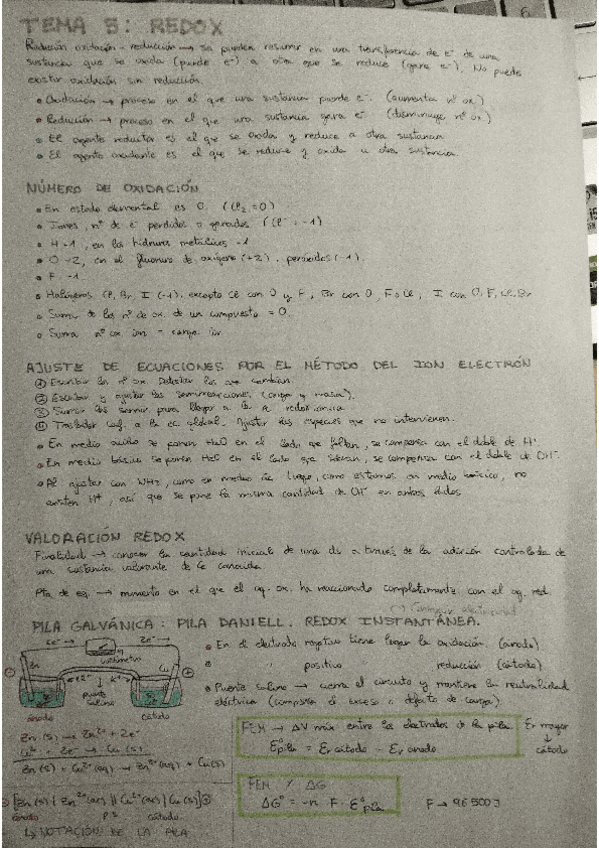 TEMA 5: REDOX
Reacción oxidación - reducción → se pueden resumir en una transferencia de e⁻ de una
sustancia que se oxida (pierde e⁻) a otra que se reduce (gana e⁻). No puede
existir oxidación sin reducción.
• Oxidación → proceso en el que una sustancia pierde e⁻. (aumenta nº ox)
• Reducción → proceso en el que una sustancia gana e⁻ (disminuye nº ox)
• El agente reductor es el que se oxida y reduce a otra sustancia
• El agente oxidante es el que se reduce y oxida a otra sustancia.
NÚMERO DE OXIDACIÓN
• En estado elemental es 0. (Cl₂ = 0)
• Iones, nº de e⁻ perdidos o ganados (Cl⁻ = -1)
• H +1, en los hidruros metálicos -1
• O -2, en el fluoruro de oxígeno (+2), peróxidos (-1).
• F -1
• Halógenos Cl, Br, I (-1). excepto Cl con O y F, Br con O, F o Cl, I con O, F, Cl, Br
• Suma de los nº de ox. de un compuesto = 0.
• Suma nº ox ion = carga ion
AJUSTE DE ECUACIONES POR EL MÉTODO DEL ION ELECTRÓN
① Escribir los nº ox. Detectar los que cambian.
② Escribir y ajustar las semirreacciones. (carga y masa).
③ Sumar las semirr para llegar a la redox iónica
④ Trasladar coef. a la ec global. Ajustar las especies que no intervienen.
• En medio ácido se ponen H₂O en el lado que faltan, se compensa con el doble de H⁺
• En medio básico se ponen H₂O en el lado que sobran, se compensa con el doble de OH⁻
• Al ajustar con como estamos en medio básico, no
existen H⁺, así que se pone la misma cantidad de OH⁻ en ambos lados
VALORACIÓN REDOX
Finalidad → conocer la cantidad inicial de una ds a través de la adición controlada de
una sustancia valorante de conocida
Pto de eq. → momento en el que el ag. ox. ha reaccionado completamente con el ag. red.
PILA GALVÁNICA: PILA DANIELL. REDOX INSTANTÁNEA.
• En el electrodo negativo tiene lugar la oxidación. (ánodo).
• " positivo " reducción (cátodo).
• Puente salino → cierra el circuito y mantiene la neutralidad
eléctrica (compensa el exceso o defecto de carga).
2e⁻ → 2e⁻
voltímetro
Zn
Cu
puente
salino
ánodo
cátodo
Zn (s) → Zn²⁺ + 2e⁻
Cu²⁺ + 2e⁻ → Cu (s)
Zn (s) + Cu²⁺ (aq) → Zn²⁺ (aq) + Cu(s)
FEM → ΔV máx entre los electrodos de la pila
E°pila = Er cátodo - Er ánodo
Er mayor
↓
cátodo
FEM Y ΔG
ΔG° = -n F · E°pila
F → 96500 J
⊖ [Zn (s) | Zn²⁺ (aq) || Cu²⁺ (aq) | Cu (s)] ⊕
ánodo P.S cátodo
↳ NOTACIÓN DE LA PILA